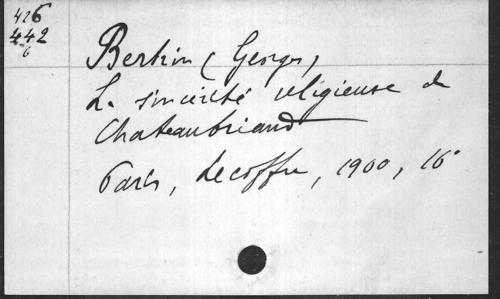 426
442
6
Bertrin (Georges)
La sincérité religieuse de
Chateaubriand
Paris, Lecoffre, 1900, 16°